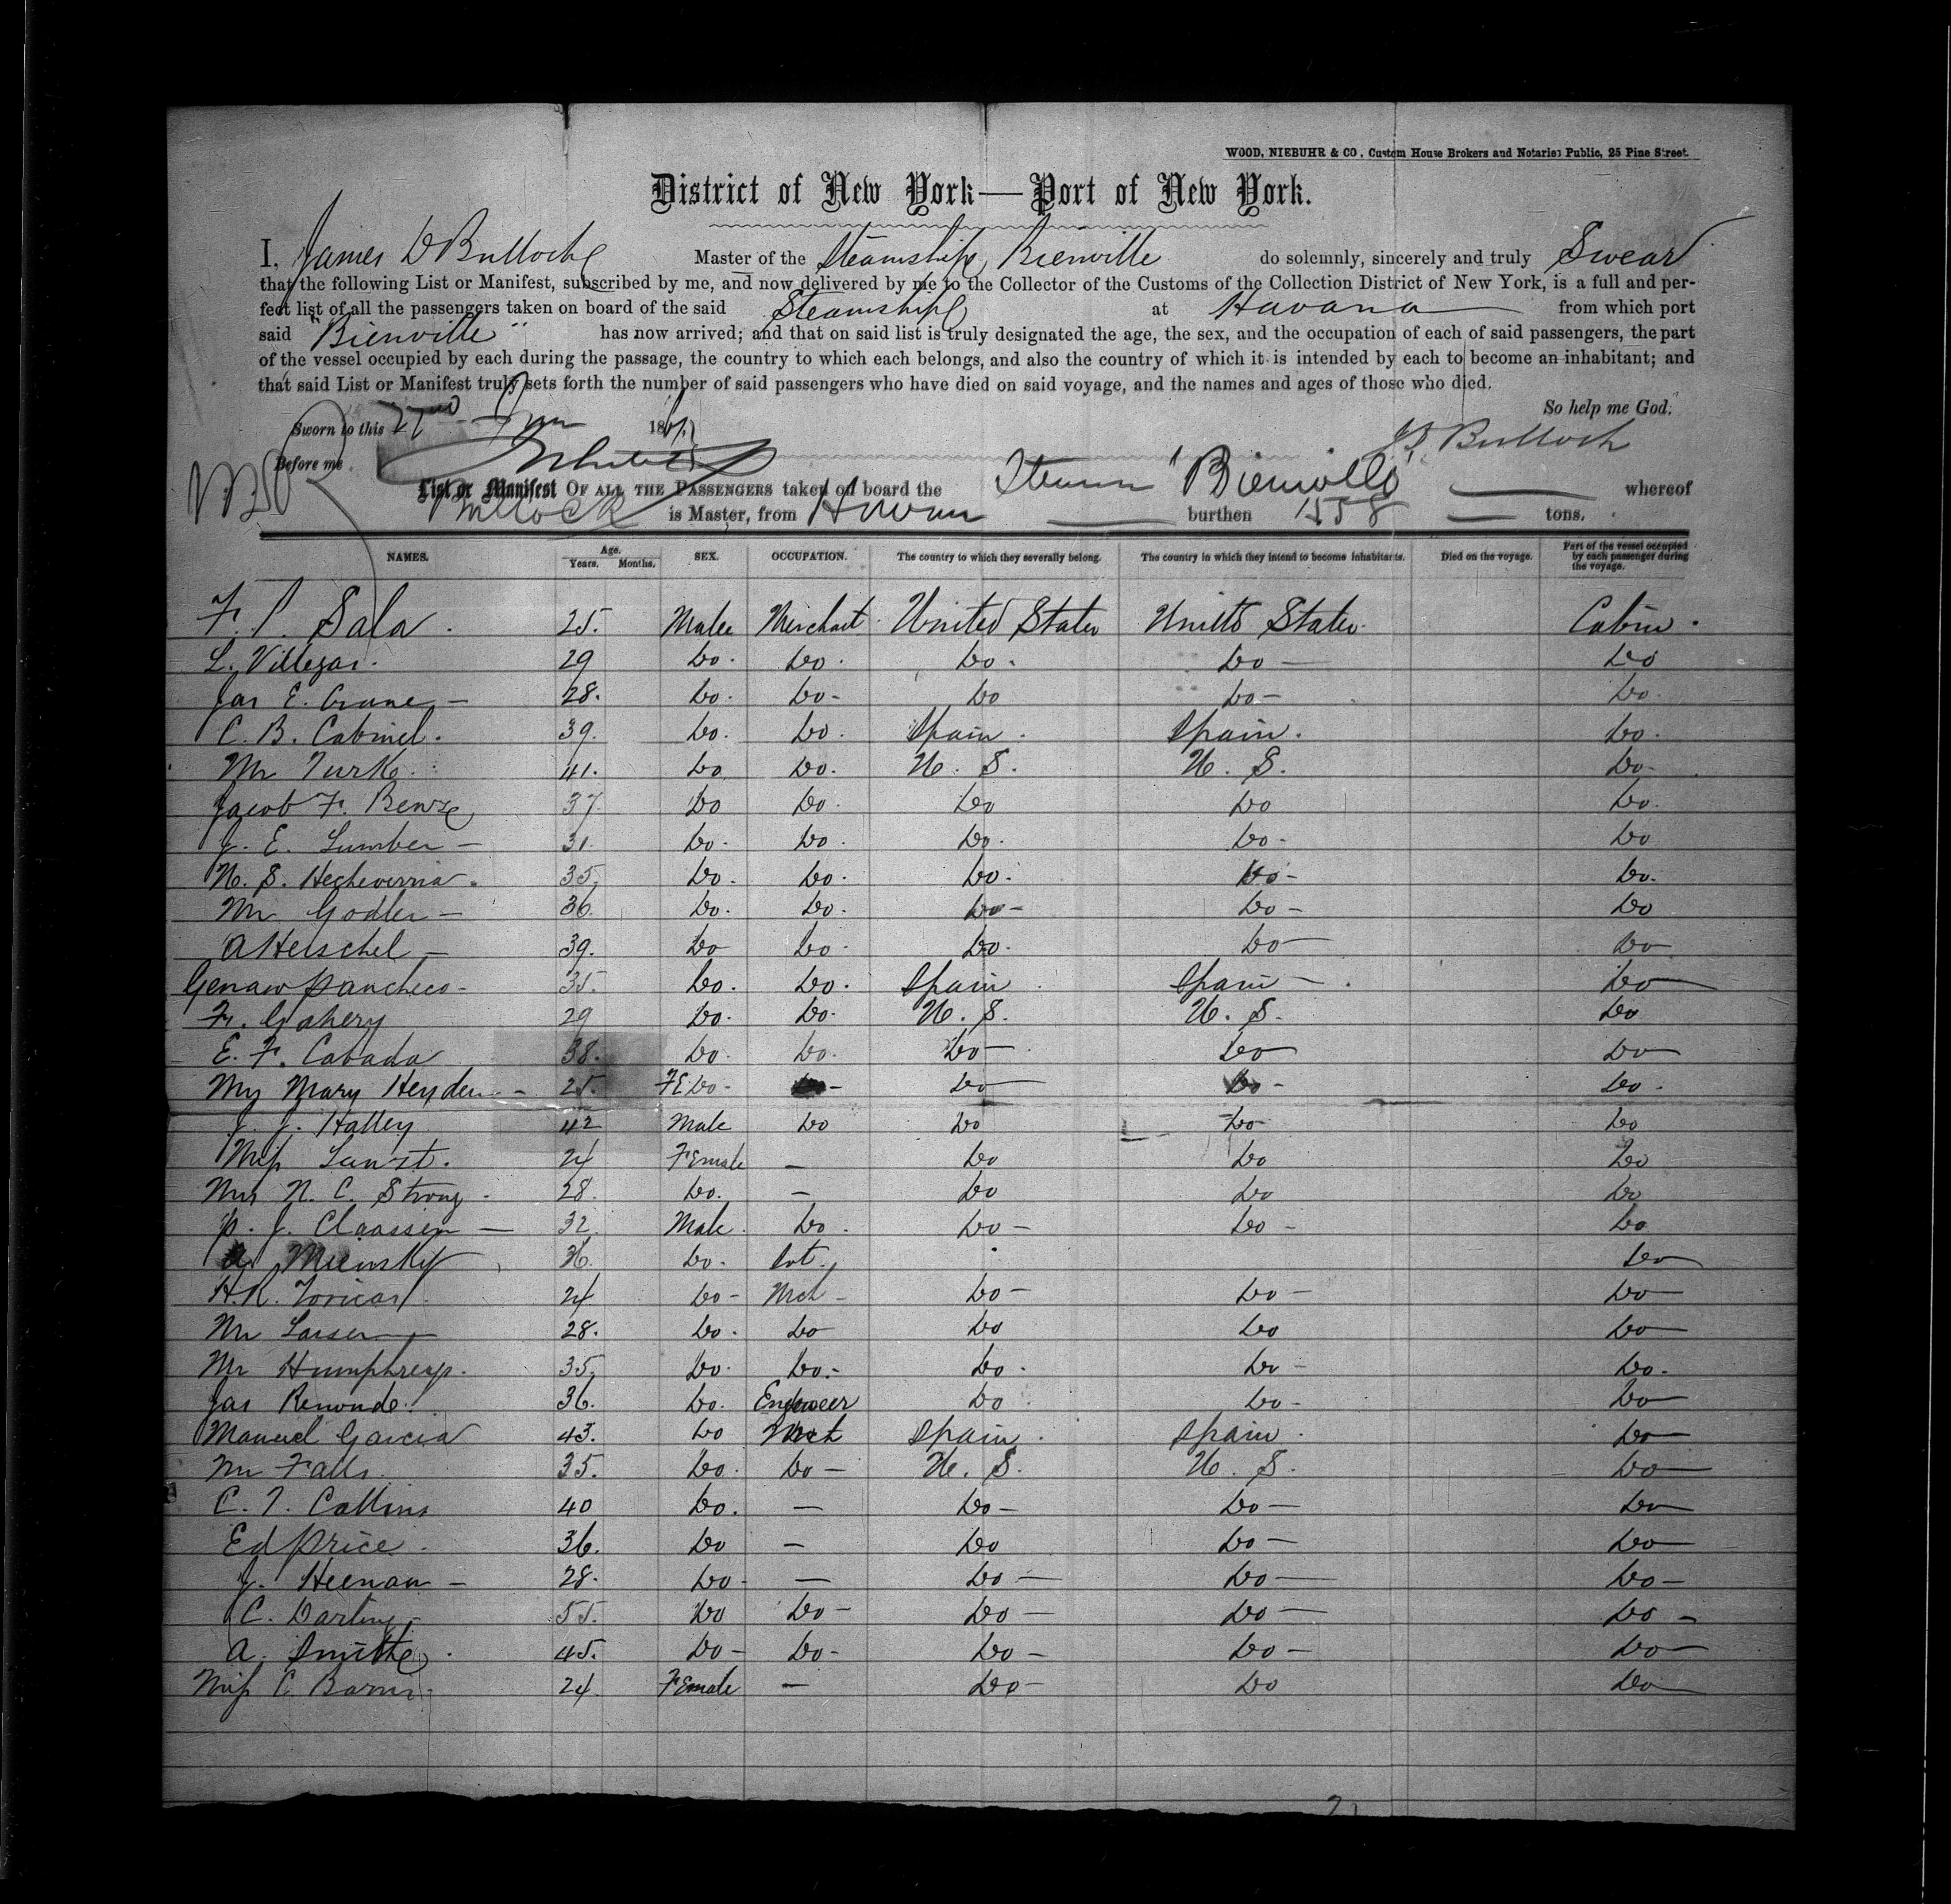 WOOD, NIEBUHR & CO., Custom House Brokers and Notaries Public, 25 Pine Street.
District of New York—Port of New York.
I, James D Bulloch Master of the Steamship Bienville do solemnly, sincerely and truly Swear
that the following List or Manifest, subscribed by me, and now delivered by me to the Collector of the Customs of the Collection District of New York, is a full and per-
fect list of all the passengers taken on board of the said Steamship at Havana from which port
said "Bienville" has now arrived; and that on said list is truly designated the age, the sex, and the occupation of each of said passengers, the part
of the vessel occupied by each during the passage, the country to which each belongs, and also the country of which it is intended by each to become an inhabitant; and
that said List or Manifest truly sets forth the number of said passengers who have died on said voyage, and the names and ages of those who died.
So help me God.
Sworn to this 22nd 186
J D Bulloch
Before me
List or Manifest OF ALL THE PASSENGERS taken on board the Steamer "Bienville" whereof
Bullock is Master, from Havana burthen 1558 tons.
NAMES. Age. Years. Months. SEX. OCCUPATION. The country to which they severally belong. The country in which they intend to become inhabitants. Died on the voyage. Part of the vessel occupied by each passenger during the voyage.
F. P. Sala. 25. Male Merchant United States United States Cabin.
L. Villegas. 29 Do. Do. Do. Do — Do
Jas E. Crane — 28. Do. Do - Do Do - Do.
C. B. Cabinel. 39. Do. Do. Spain. Spain. Do.
Mr Turk. 41. Do Do. U. S. U. S. Do-
Jacob F. 37. Do Do. Do Do Do.
J. E. Lumber — 31. Do. Do. Do. Do- Do
N. S. Hecheverria. 35. Do. Do. Do. Do- Do.
Mr Godler — 36. Do. Do. Do - Do - Do
A Herschel — 39. Do Do. Do. Do — Do
Genaro Pancheco - 35. Do. Do. Spain. Spain - Do
F. Gahery 29 Do. Do. U. S. U. S. Do
E. F. Cabada 38. Do. Do. Do - Do Do
Mary Heyden - 25. FE Do - Do - Do Do - Do.
J. J. Halley 42 Male Do Do Do Do
Miss 24 Female — Do Do Do
Mrs N. C. Strong - 28. Do. — Do Do Do
P. J. Claassen — 32 Male. Do. Do - Do - Do
36. Do. Do
H. R. 24 Do - Mch - Do - Do - Do
Mr Larsen 28. Do. Do Do Do Do
Mr Humphreys. 35. Do. Do.- Do. Do - Do.
Jas 36. Do. Engineer Do Do - Do
Manuel Garcia 43. Do Mch Spain. Spain. Do
Mr Falls 35. Do. Do - U. S. U. S. Do
C. T. Collins 40 Do. — Do - Do - Do
Ed Price. 36. Do — Do Do - Do
J. Heenan - 28. Do - — Do - Do — Do -
C. Darling - 55. Do Do - Do - Do - Do -
A. Smith. 45. Do - Do - Do - Do - Do
Miss C. 24. Female — Do - Do Do